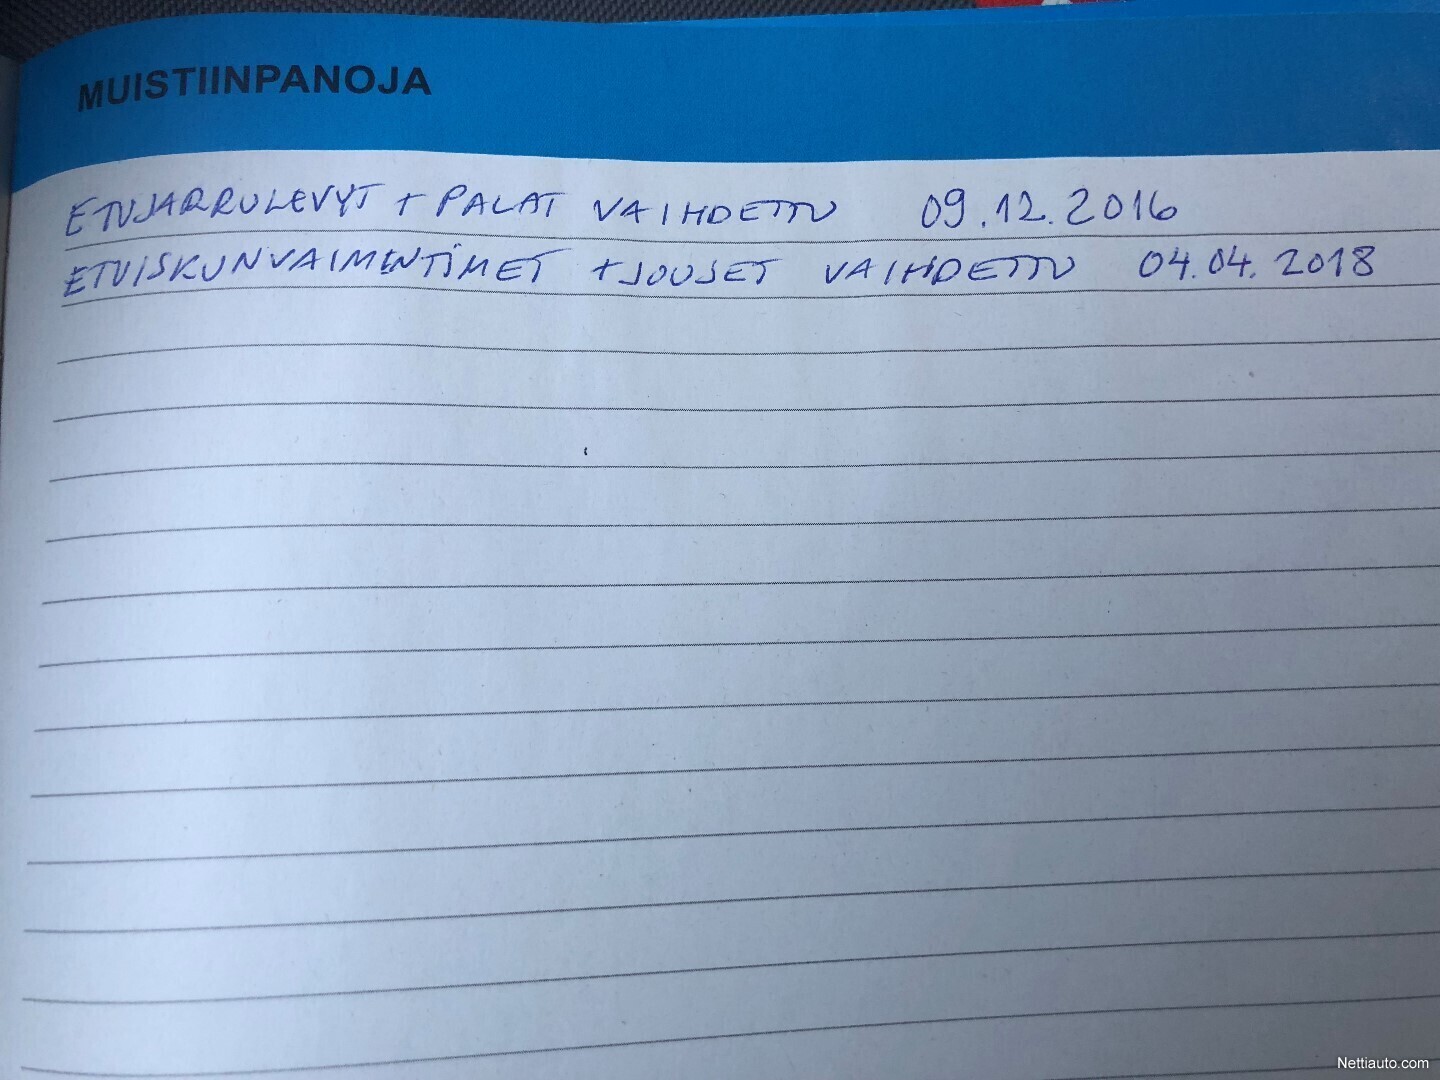 MUISTIINPANOJA
ETUJARRULEVYT + PALAT VAIHDETTU 09.12.2016
ETUISKUNVAIMENTIMET + JOUSET VAIHDETTU 04.04.2018
Nettiauto.com